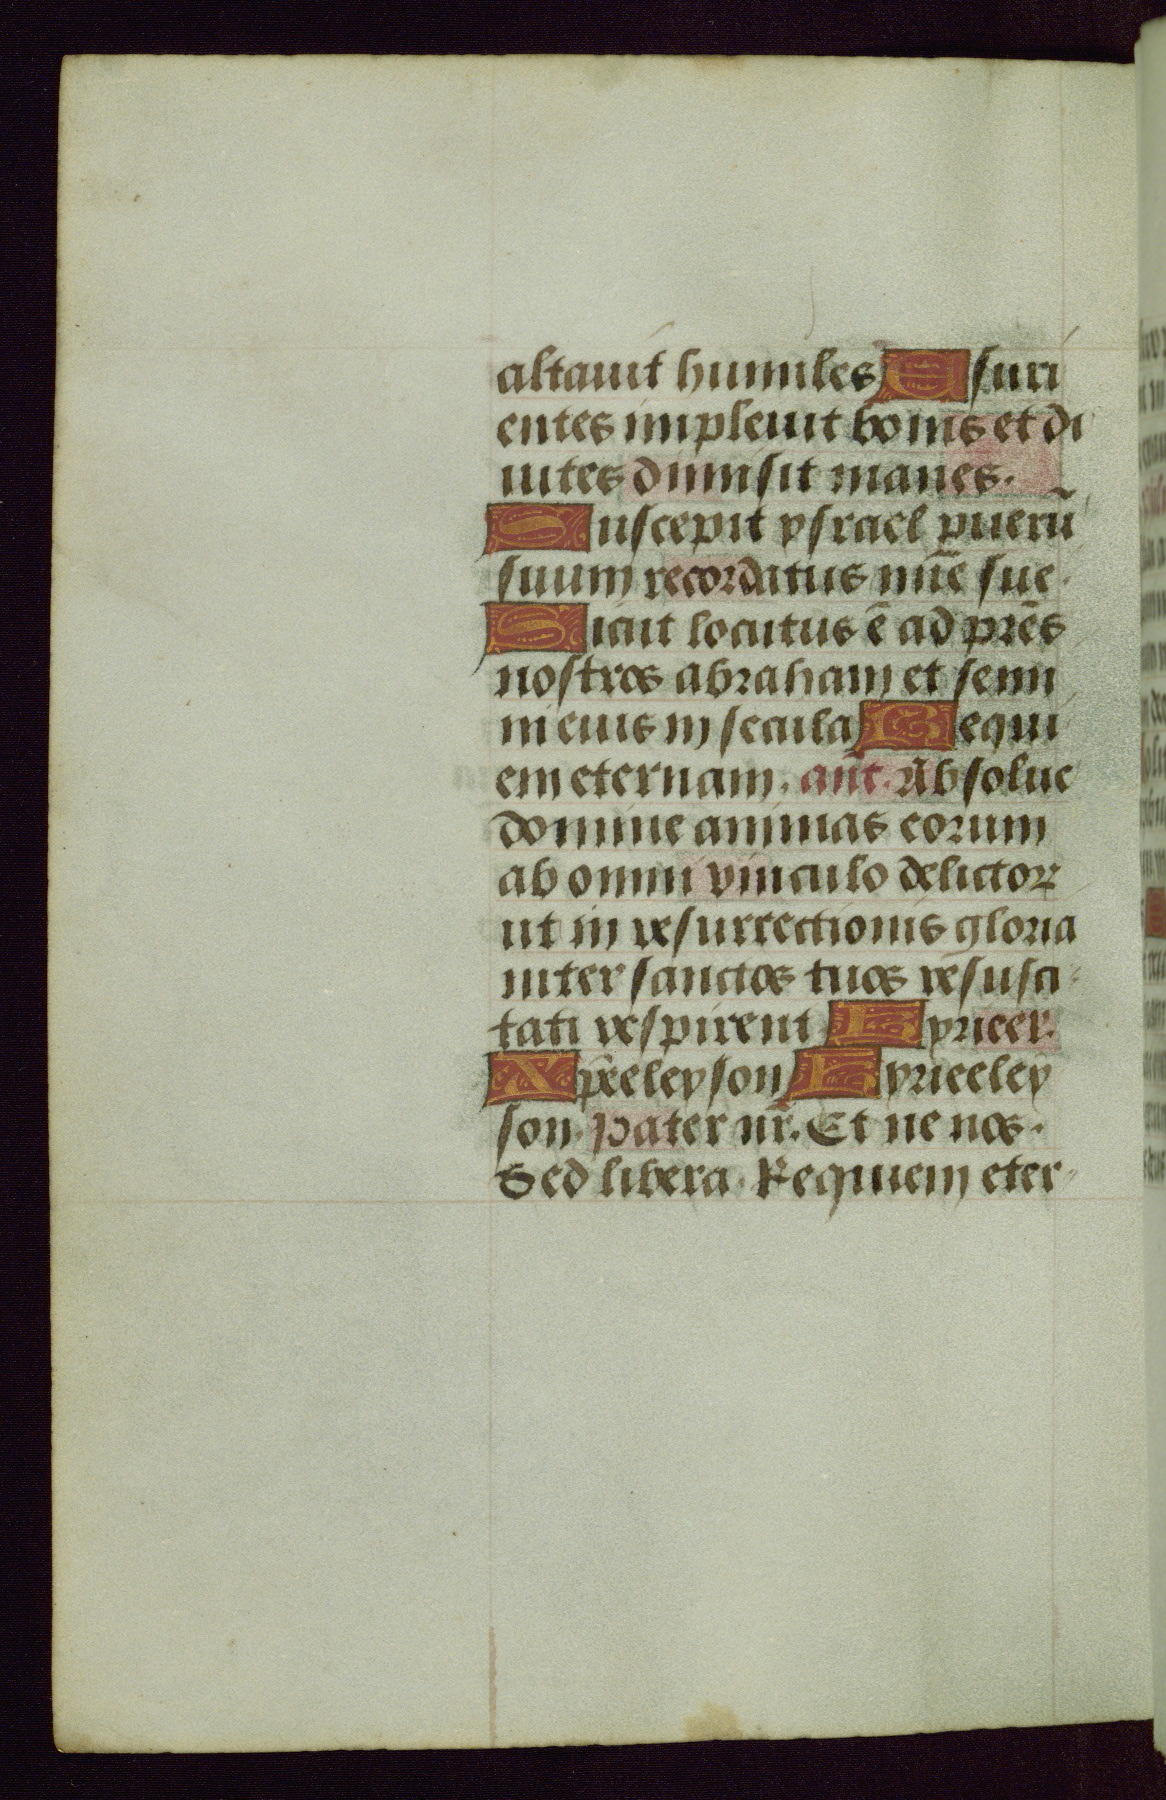 altauit humiles Esuri
entes impleuit bonis et di
uites dimisit inanes.
Suscepit ysrael puerū
suum recordatus mīe sue.
Sicut locutus ē ad prēs
nostros abraham et semi
ni eius in secula Requi
em eternam. añt. Absolue
domine animas eorum
ab omni vinculo delictoꝝ
ut in resurrectionis gloria
inter sanctos tuos resusci
tati respirent Kyrieel.
Xp̄eeleyson Kyrieeley
son. pater nr̄. Et ne nos.
Sed libera. Requiem eter